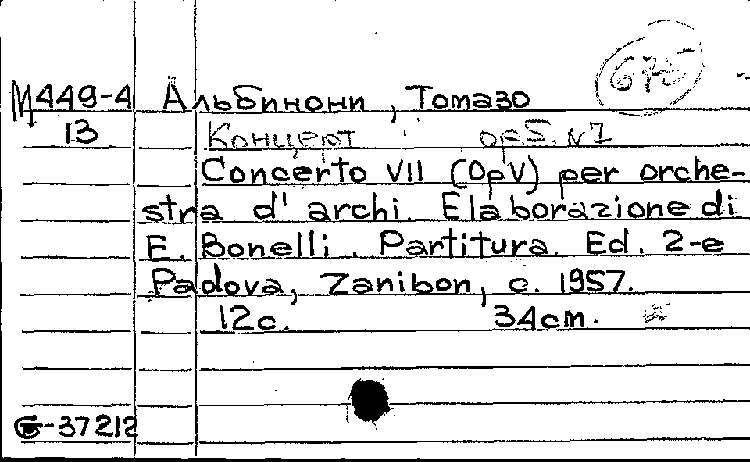 М449-4 Альбинони, Томазо
13 Концерт op5. N7
Concerto VII (Op V) per orche-
stra d' archi. Elaborazione di
E. Bonelli. Partitura. Ed. 2-e
Padova, Zanibon, c. 1957.
12c. 34cm.
-37212